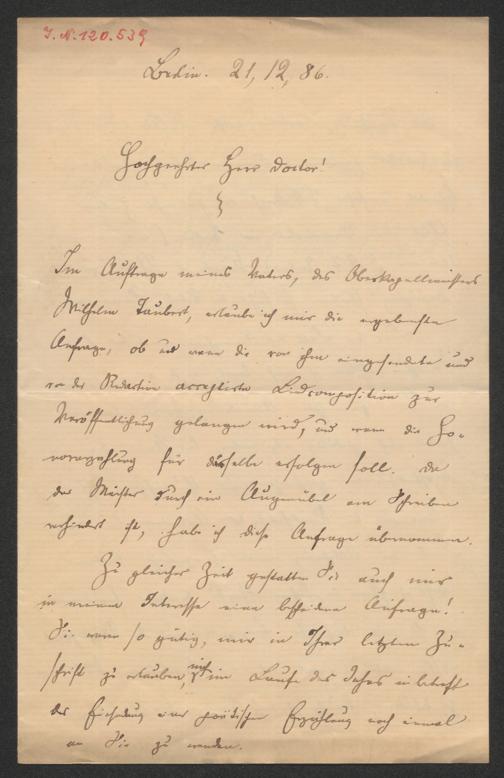 J. N. 120.539
Berlin. 21, 12, 86.
Hochgeehrter Herr Doctor!
Im Auftrage meines Vaters, des Oberkapellmeisters
Wilhelm Taubert, erlaube ich mir die ergebenste
Anfrage, ob und wann die von ihm eingesendete und
von der Redaction acceptirte Liedcomposition zur
Veröffentlichung gelangen wird, und wann die Ho-
norarzahlung für dieselbe erfolgen soll. Da
der Meister durch ein Augenübel am Schreiben
verhindert ist, habe ich diese Anfrage übernommen.
Zu gleicher Zeit gestatten Sie auch mir
in meinem Interesse eine bescheidene Anfrage!
Sie waren so gütig, mir in Ihrer letzten Zu-
schrift zu erlauben, mich im Laufe des Jahres in betreff
der Einsendung einer poëtischen Erzählung noch einmal
an Sie zu wenden.